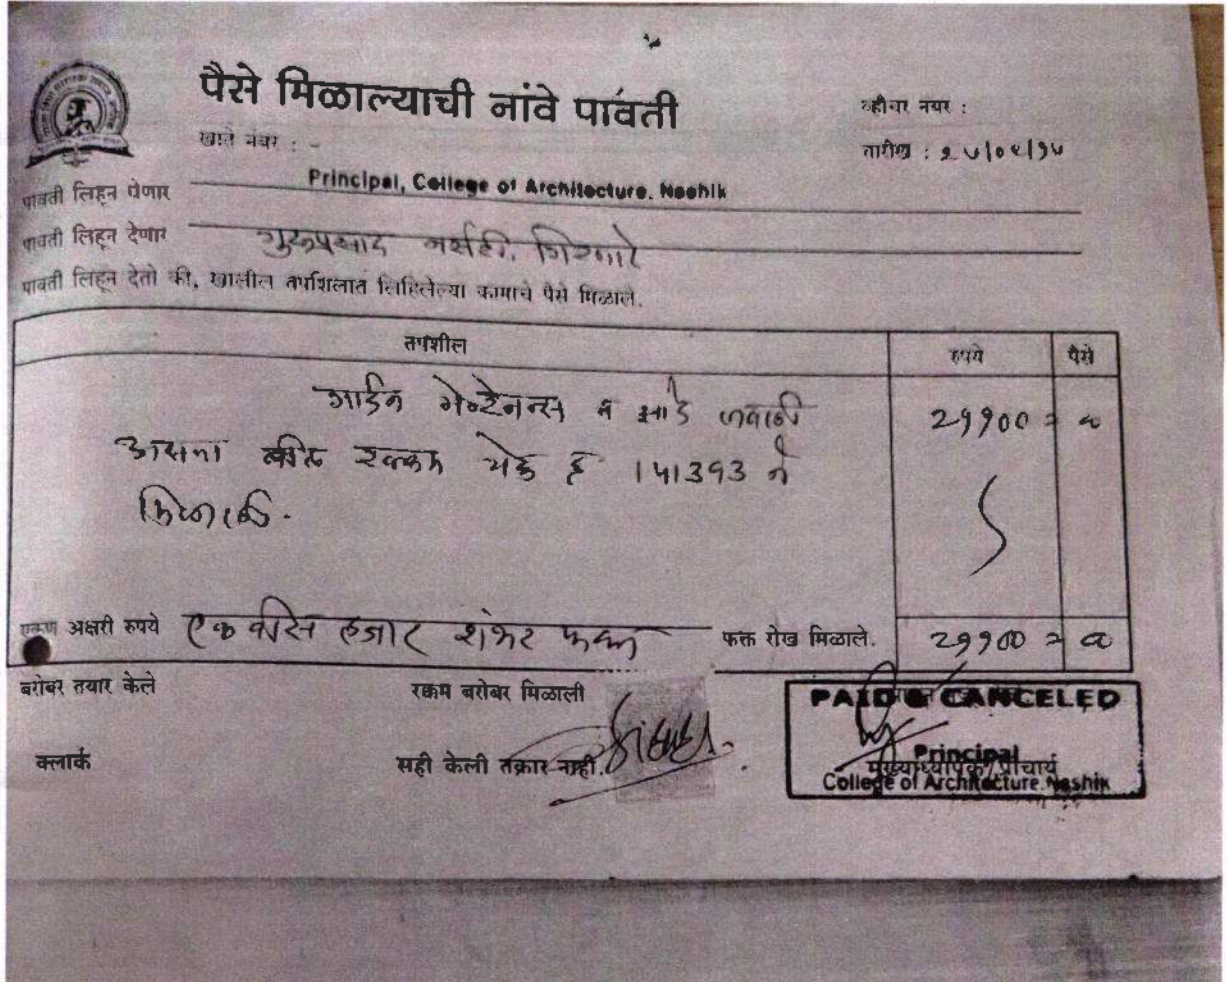 पैसे मिळाल्याची नांवे पावती
व्हौचर नंबर :
खाते नंबर : -
तारीख : २५/०४/१५
पावती लिहून घेणार Principal, College of Architecture, Nashik
पावती लिहून देणार गुरुप्रसाद नर्सरी, गिरणारे
पावती लिहून देतो की, खालील तपशिलात लिहिलेल्या कामाचे पैसे मिळाले.
तपशील रुपये पैसे
गार्डन मेन्टेनन्स व झाडे २११०० =
रक्कम चेक 141393 ने
मिळाली.
एकूण अक्षरी रुपये एकवीस हजार शंभर फक्त फक्त रोख मिळाले. २११०० =
बरोबर तयार केले रक्कम बरोबर मिळाली
PAID & CANCELED
क्लार्क सही केली तक्रार नाही.
Principal
मुख्याध्यापक/प्राचार्य
College of Architecture, Nashik